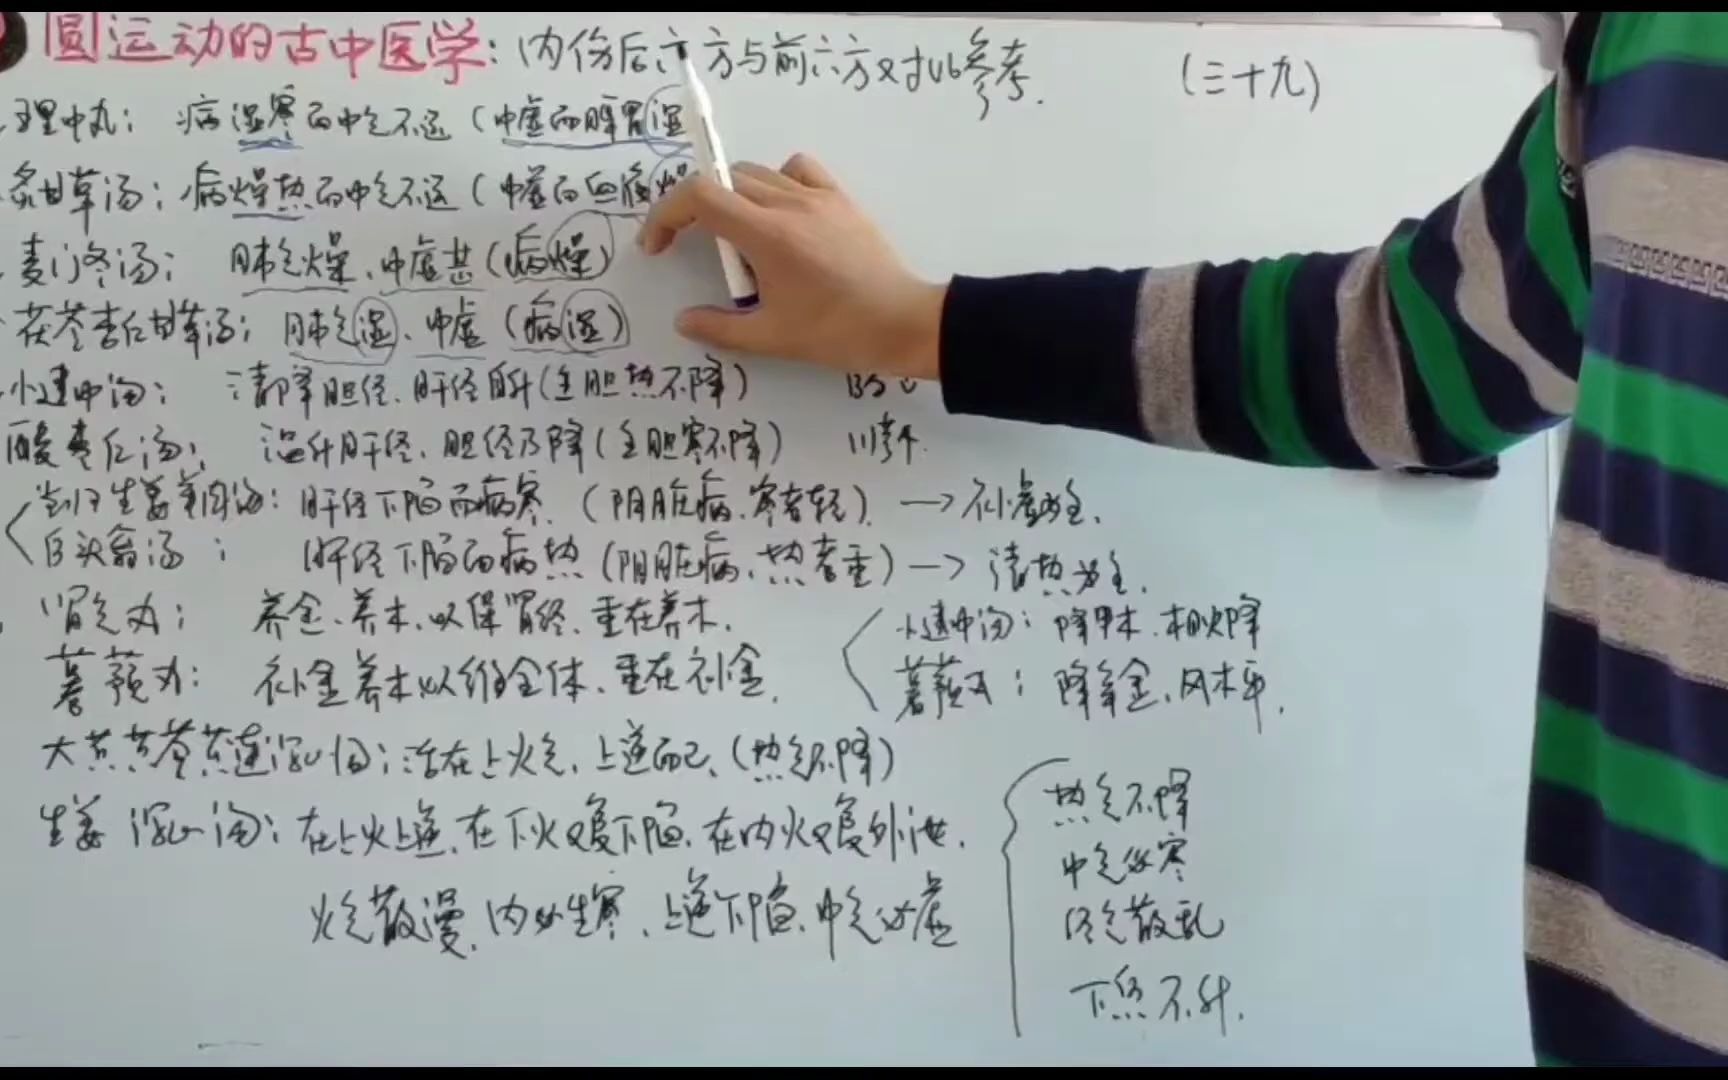 圆运动的古中医学:内伤后六方与前六方对比参考. (三十九)
理中丸: 病湿寒而中气不运(中虚而脾胃湿
炙甘草汤: 病燥热而中气不运(中虚而血液燥
麦门冬汤: 肺气燥、中虚甚(病燥)
茯苓杏仁甘草汤: 肺气湿、中虚(病湿)
小建中汤: 清降胆经、肝经自升(主胆热不降)
酸枣仁汤: 温升肝经、胆经乃降(主胆寒不降) 川芎.
当归生姜羊肉汤: 肝经下陷而病寒.(阴脏病、寒者轻) → 补虚为主.
白头翁汤: 肝经下陷而病热(阴脏病、热者重) → 清热为主.
肾气丸: 养金、养木、以保肾经、重在养木.
薯蓣丸: 补金养木以维全体、重在补金.
小建中汤: 降甲木、相火降
薯蓣丸: 降辛金、风木平.
大黄黄芩黄连泻心汤: 活在上火气、上逆而已、(热气不降)
生姜泻心汤: 在上火上逆、在下火又复下陷、在内火又复外泄.
火气散漫、内必生寒、上逆下陷、中气必虚
热气不降
中气必寒
经气散乱
下焦不升.